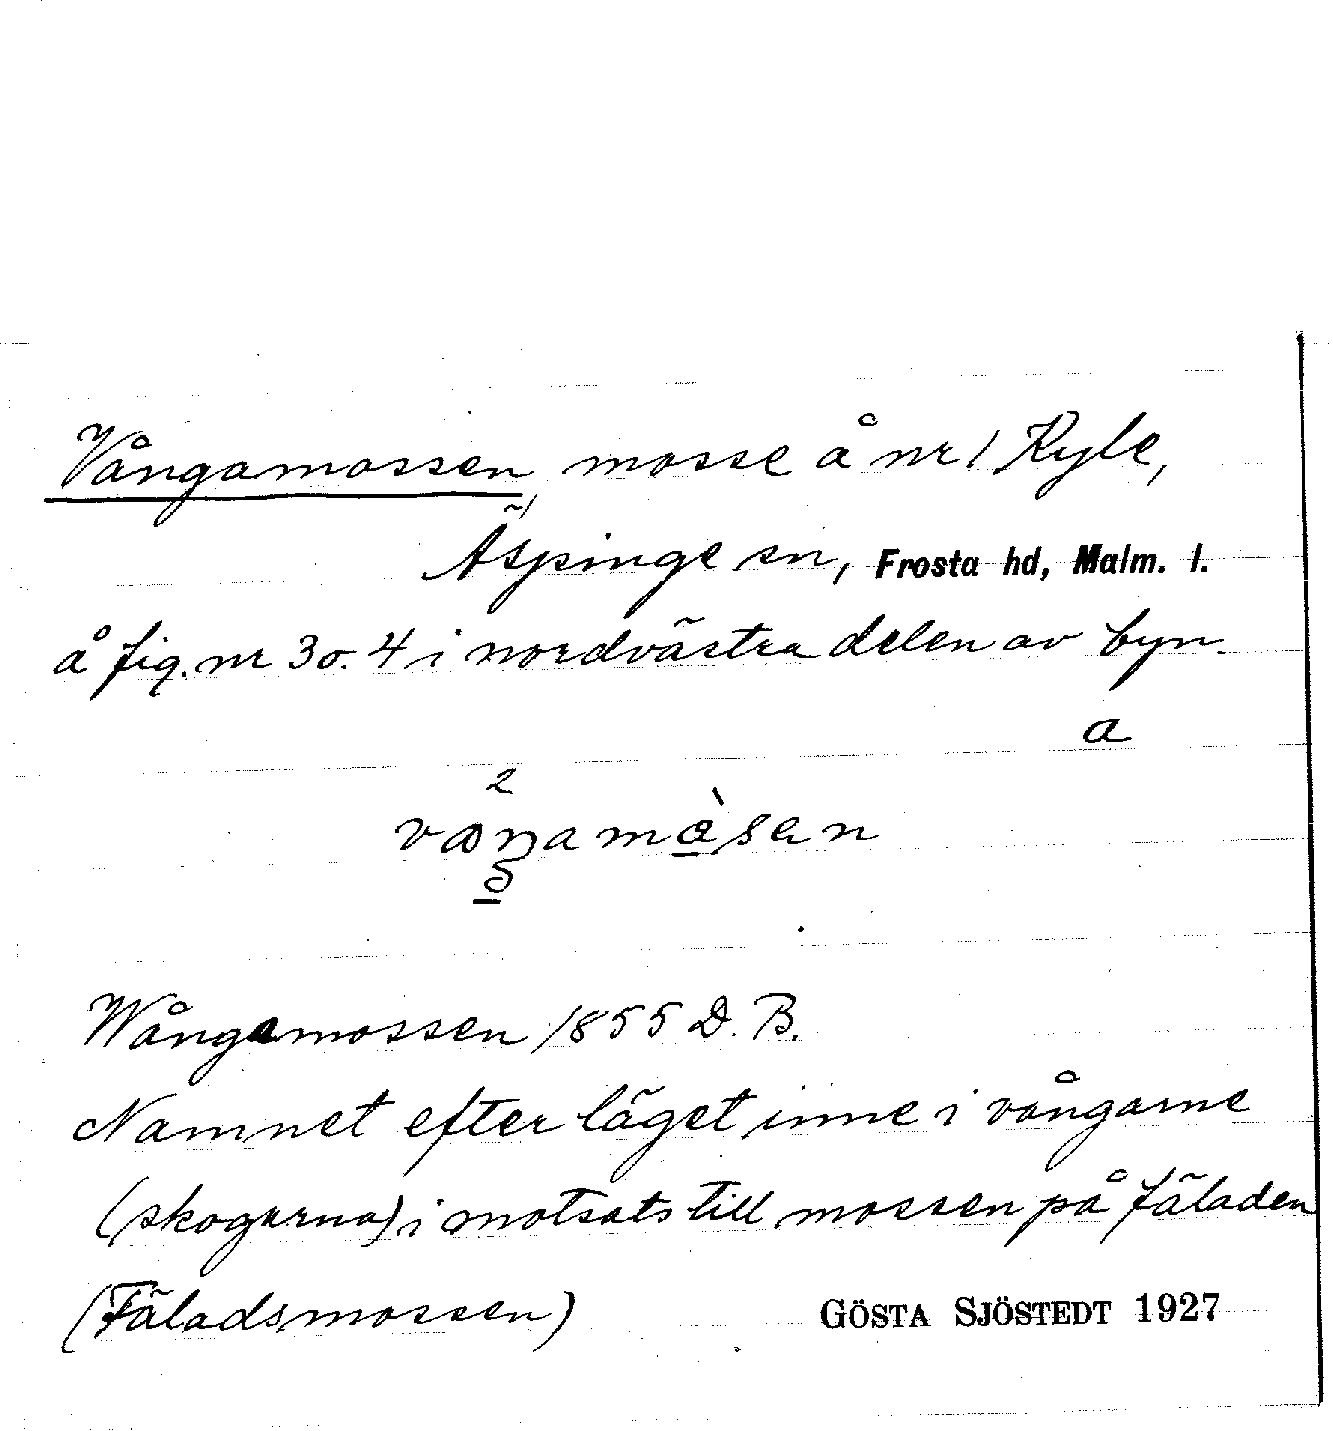 Vångamossen, mosse å nr 1 Ryle,
Äspinge sn, Frosta hd, Malm. l.
å fig. nr 3 o. 4 i nordvästra delen av byn.
a
2
Wångamossen 1855 D. B.
Namnet efter läget inne i vångarne
(skogarna) i motsats till mossen på fäladen
(Fäladsmossen)
GÖSTA SJÖSTEDT 1927